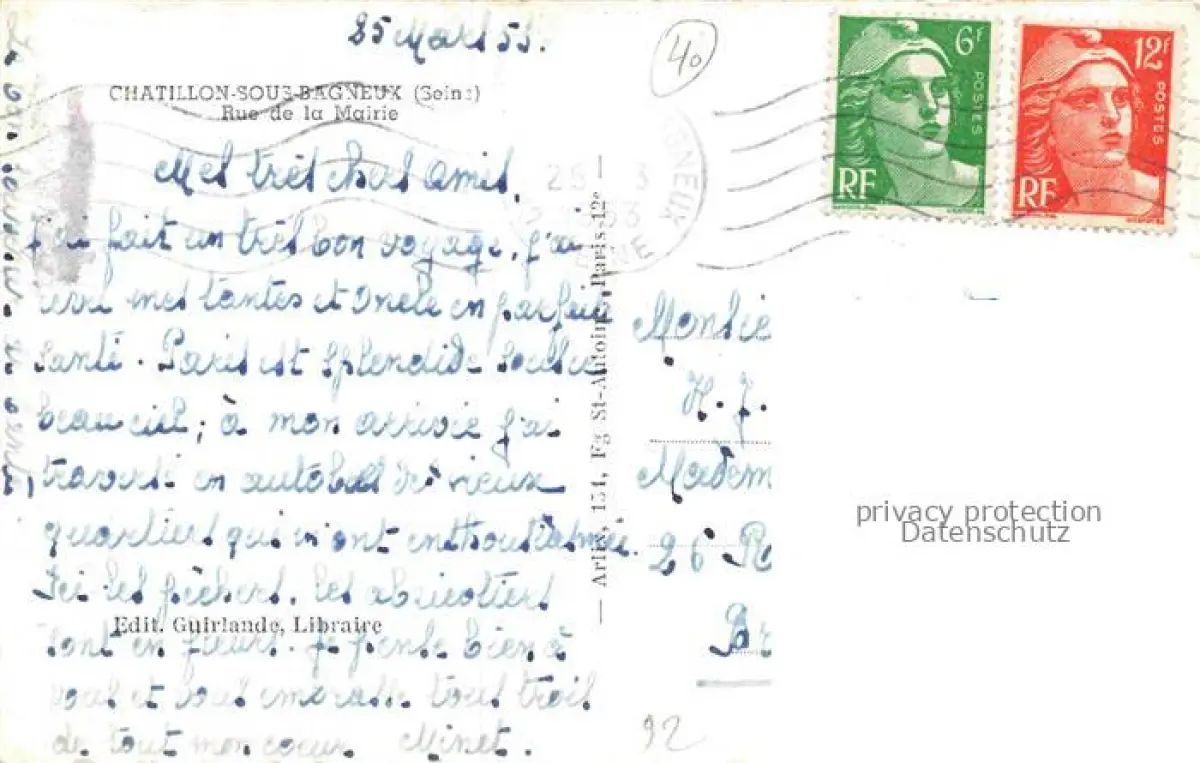 25 Mars 53.
40
CHATILLON-SOUS-BAGNEUX (Seine)
Rue de la Mairie
Mes très chers amis,
J'ai fait un très bon voyage, j'ai
mes tantes et Oncle en parfaite
santé. Paris est splendide sous ce
beau ciel; à mon arrivée j'ai
traversé en autobus des vieux
quartiers qui m'ont enthousiasmée.
Ici les pêchers, les abricotiers
sont en fleurs. Je pense bien à
vous et vous embrasse tous trois
de tout mon coeur. Minet.
Edit. Guirlande, Libraire
Fg St-Antoine, Paris-12e
6F
POSTES
RF
12F
POSTES
RF
25 3
53
GNEUX
INE
Monsie
H. J.
Madem
26
Br
92
privacy protection
Datenschutz